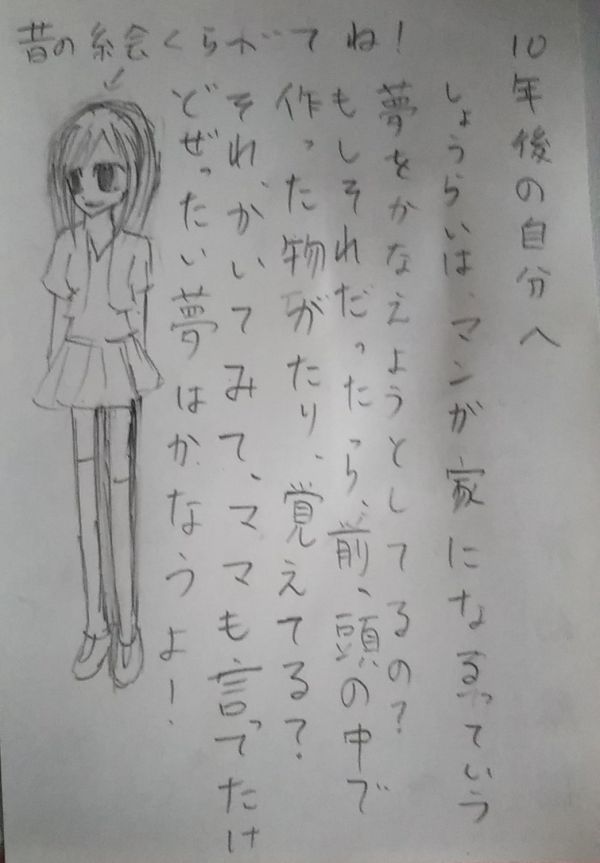 10年後の自分へ
しょうらいは、マンガ家になるっていう
夢をかなえようとしてるの?
もしそれだったら、前、頭の中で
作った物がたり、覚えてる?
それ、かいてみて、ママも言ってたけ
どぜったい夢はかなうよ!
昔の絵くらがてね!